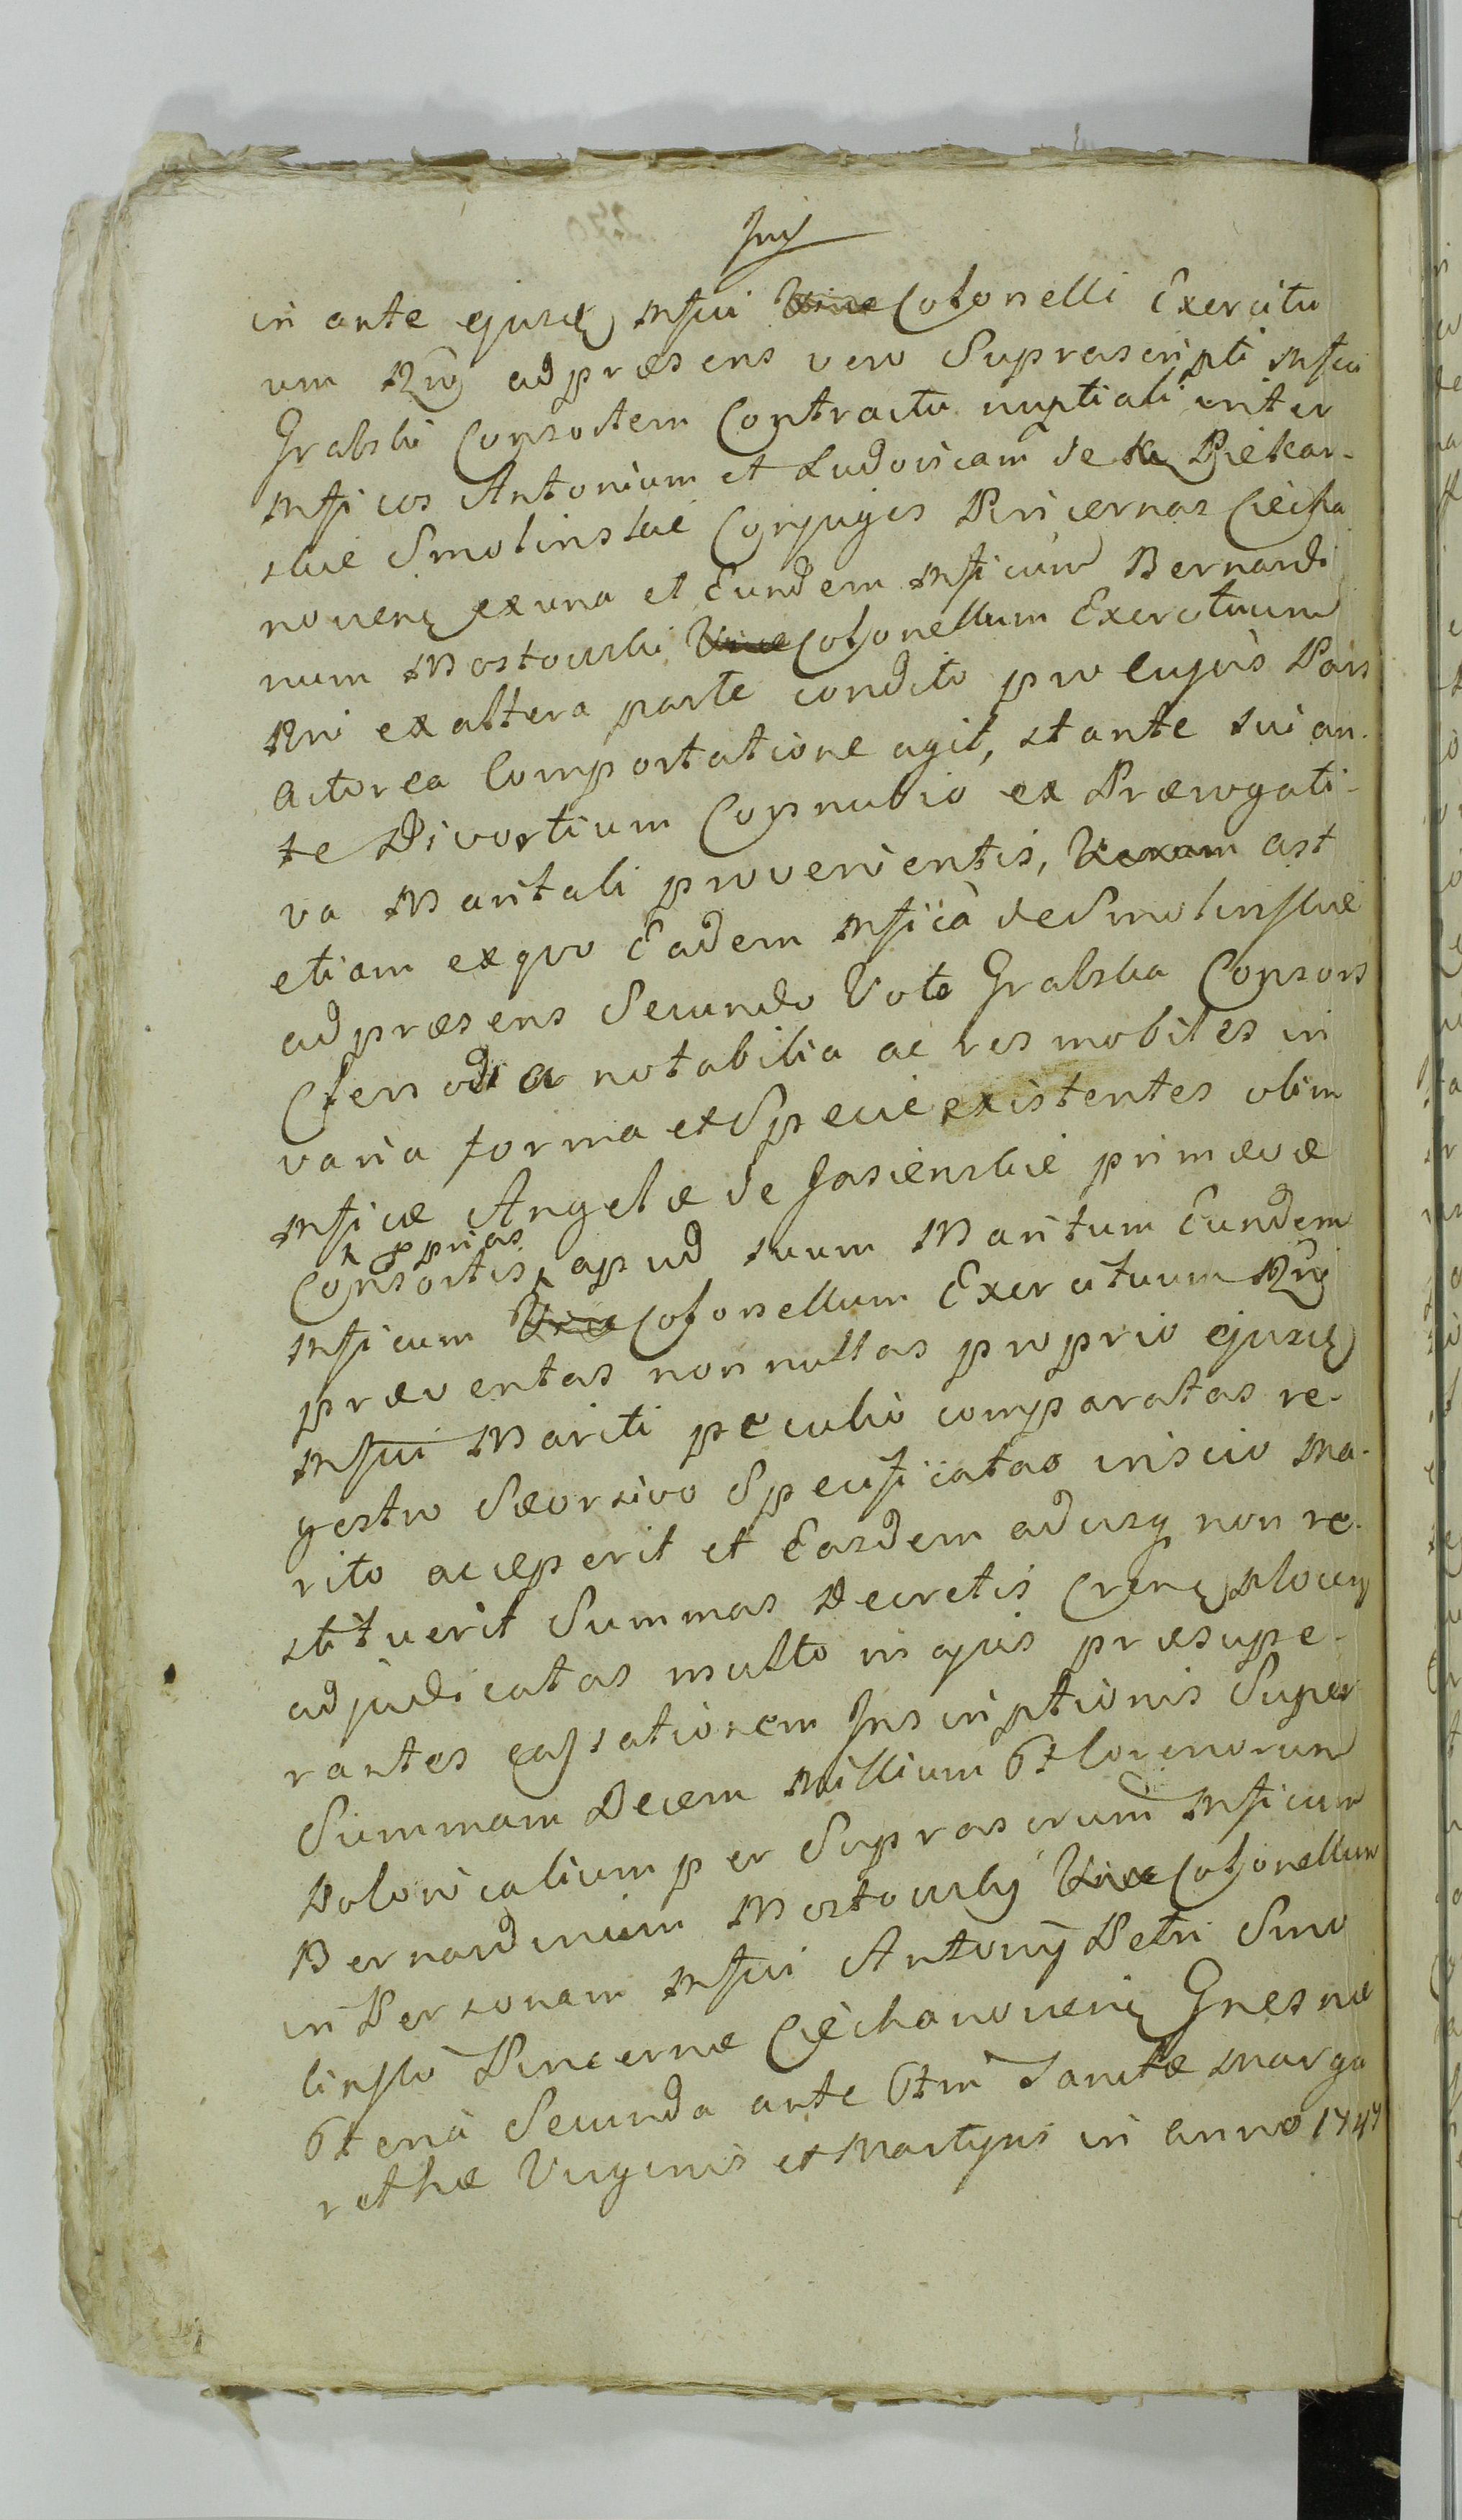 in ante ejusd Mfici Vice Colonelli Exercitu
um Rni ad præsens vero Suprascripti Mfici
Grabski Consortem Contractu nuptiali inter
Mficos Antonium et Ludovicam de Piekar-
skie Smolinskie Conjuges Pincernas Ciecha
novien ex una et Eundem Mficum Bernardi
num Mostowski Vice Colonellum Exercituum
Rni ex altera parte condito pro cujus Pars
Actorea Comportatione agit, stante sui an-
te Divortium Connubio ex Prærogati-
va Maritali provenientis, ast
etiam ex quo Eadem Mfica de Smolinskie
ad præsens Secundo Voto Grabska Consors
Clenodia notabilia ac res mobiles in
varia forma et Specie existentes olim
Mficæ Angelæ de Jasienskie primævæ
pprias
Consortis apud suum Maritum Eundem
Mficum Vice Colonellum Exercituum Rni
præventas nonnullas proprio ejusd
Mfici Mariti peculio comparatas re-
gestro Seorsivo Specificatas inscio Ma-
rito acceperit et Easdem adusq non re-
stituerit Summas Decretis
adjudicatas multo magis præsupe-
rantes cassationem Inscriptionis Super
Summam Decem Millium Florenorum
Polonicalium per Suprascrum Mficum
Bernardinum Mostowski Vice Colonellum
in Personam Mfici Antonij Petri Smo
linski Pincernæ Ciechanovien Gnesnæ
Feria Secunda ante Ftm Sanctæ Marga
rethæ Virginis et Martyris in Anno 1747